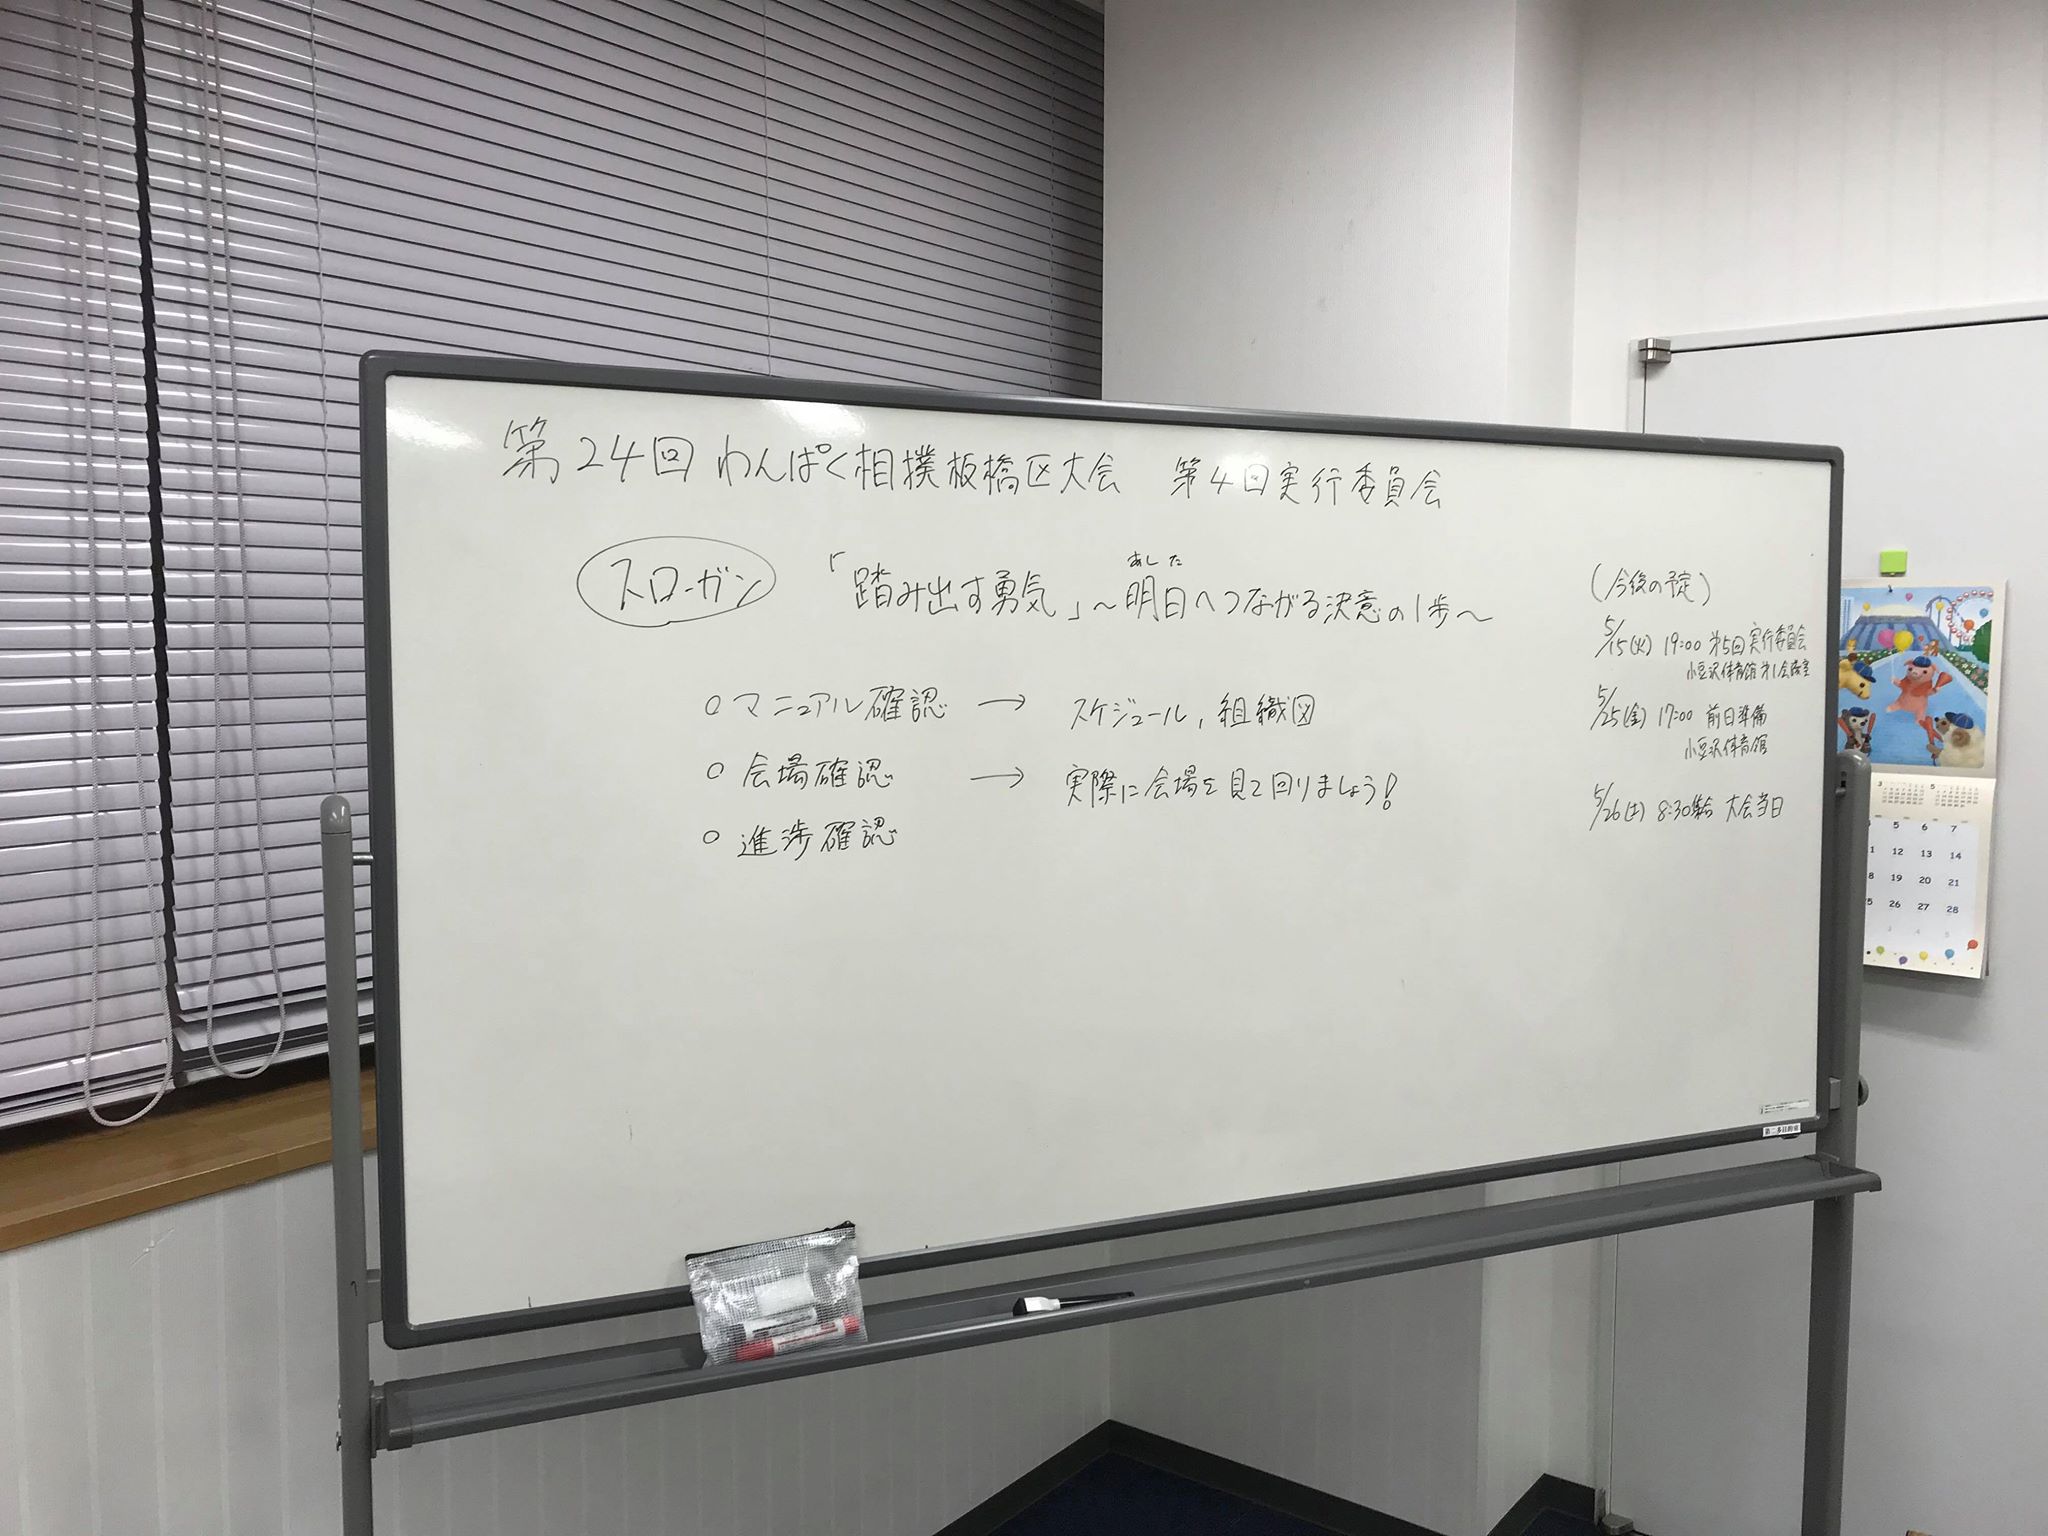 第24回 わんぱく相撲板橋区大会 第4回実行委員会
スローガン 「踏み出す勇気」～明日へつながる決意の1歩～
あした
○ マニュアル確認 → スケジュール, 組織図
○ 会場確認 → 実際に会場を見て回りましょう!
○ 進捗確認
(今後の予定)
5/15(火) 19:00 第5回実行委員会
小豆沢体育館 第1会議室
5/25(金) 17:00 前日準備
小豆沢体育館
5/26(土) 8:30集合 大会当日
第二多目的室
3 5
5 6 7
12 13 14
19 20 21
26 27 28
3 4 5